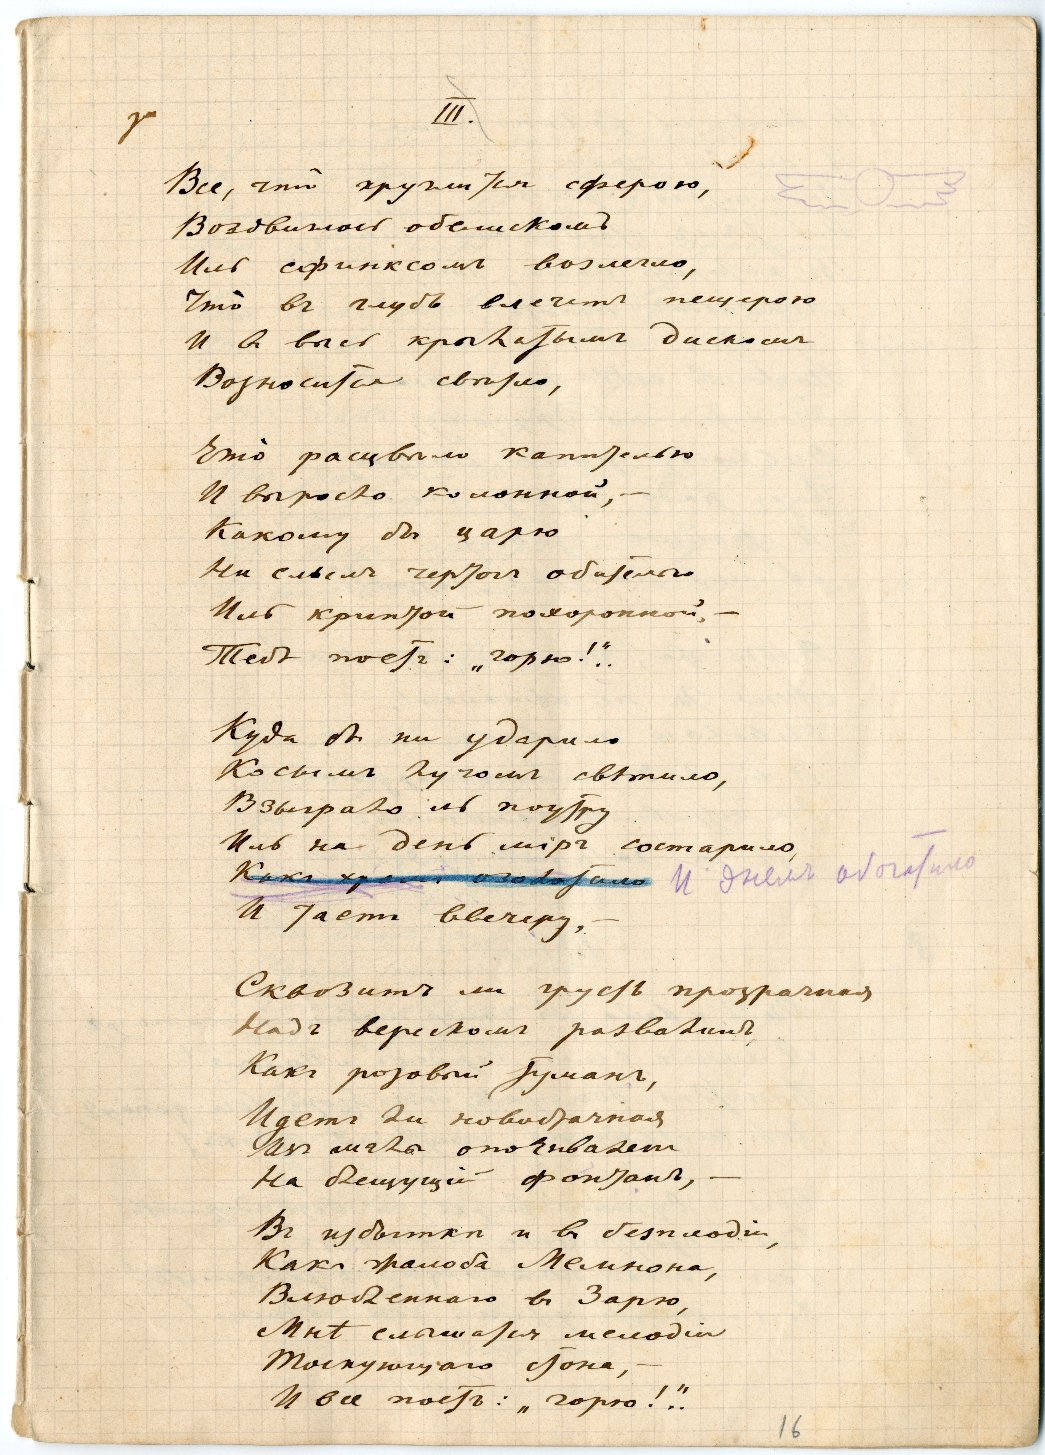 III.
Все, что круглится сферою,
Воздвиглось обелискомъ
Иль сфинксомъ возлегло,
Что̀ въ глубь влечетъ пещерою
И въ высь крылатымъ дискомъ
Возносится свѣтло,
Что̀ расцвѣло капителью
И выросло колонной, —
Какому бъ царю
Ни слыл чертогъ обителью
Иль криптой похоронной, —
Тебѣ поетъ: „горю!“..
Куда бъ ни ударило
Косымъ лучомъ свѣтило,
Взыграло ль поутру
Иль на день міръ состарило,
И днемъ обогатило
И таетъ ввечеру, —
Сквозитъ ли грусть прозрачная
Надъ верескомъ развалинъ,
Какъ розовый туманъ,
Идетъ ли новобрачная
Изъ мглы опочивален
На блещущій фонтанъ, —
Въ избыткѣ и въ безплодіи,
Какъ жалоба Мемнона,
Влюбленнаго въ Зарю,
Мнѣ слышатся мелодіи
Тоскующаго стона, —
И все поетъ: „горю!“..
16